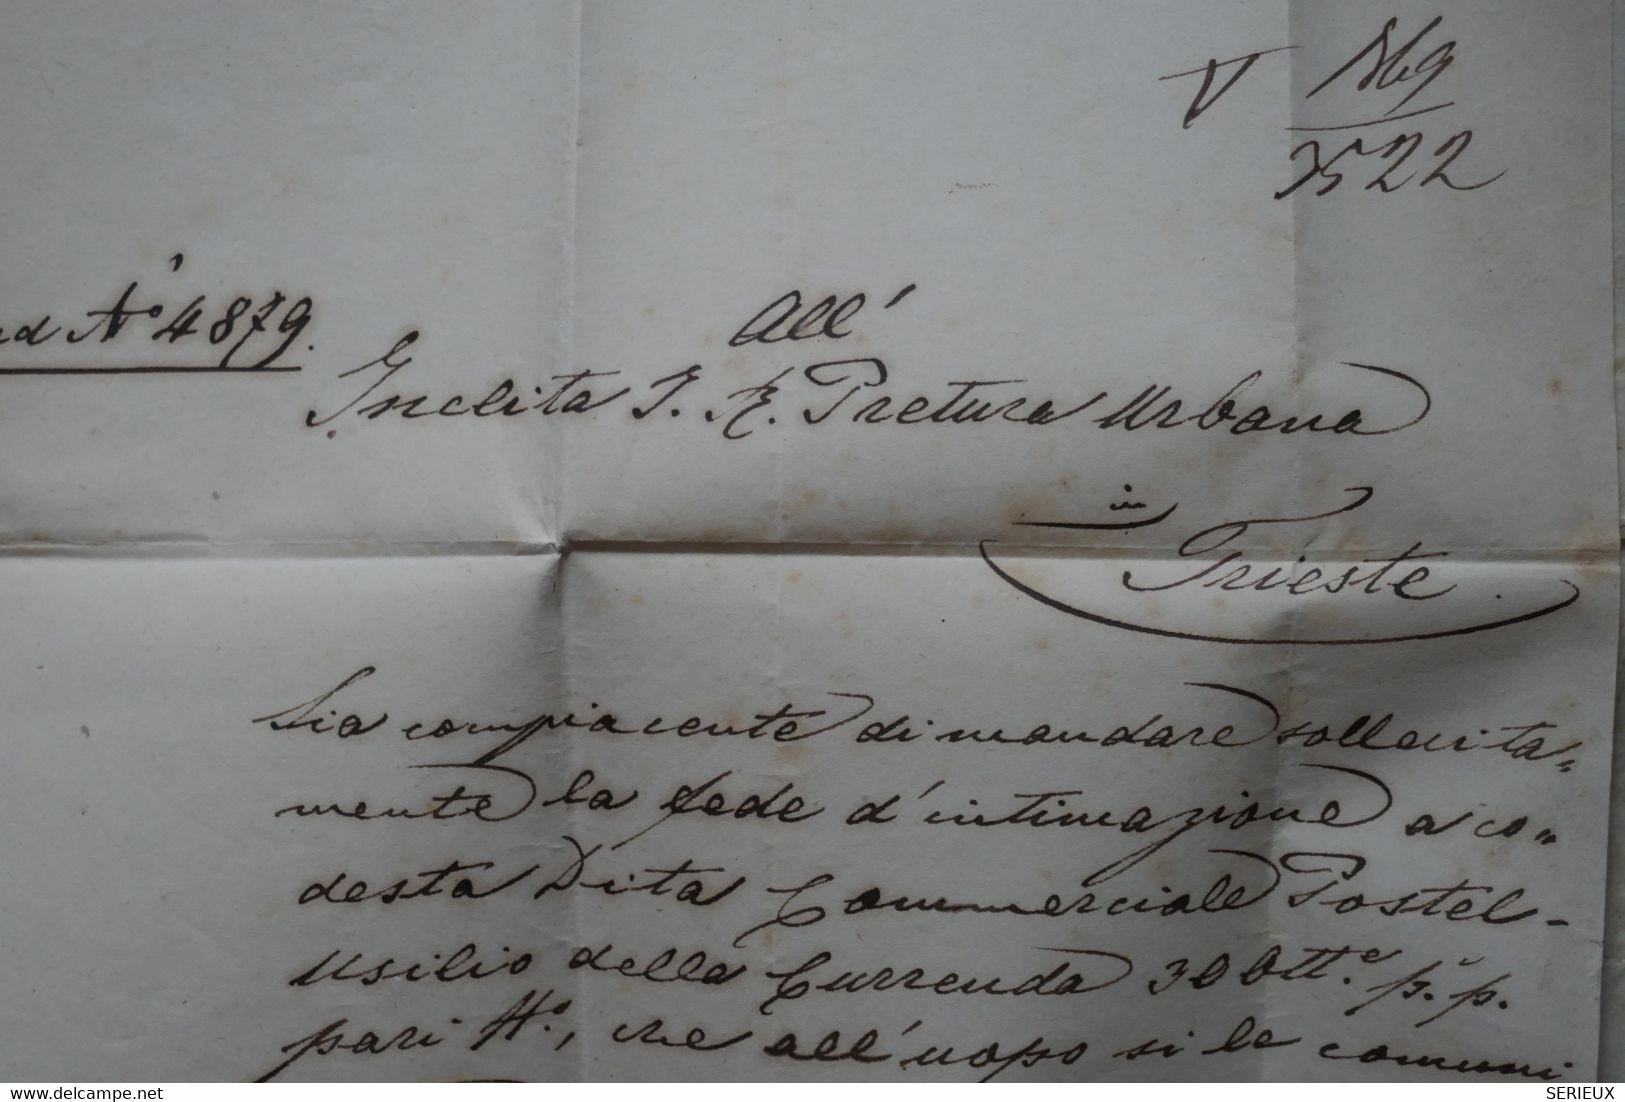 V 3522
ad No 4879.
All'
Inclita I. R. Pretura Urbana
in
Trieste.
Sia compiacente di mandare sollecita=
mente la fede d'intimazione a co=
desta Dita Commerciale Postel-
usilio della Currenda 30 Ott.e p.o p.
pari No, che all'uopo si le comuni
delcampe.net
SERIEUX